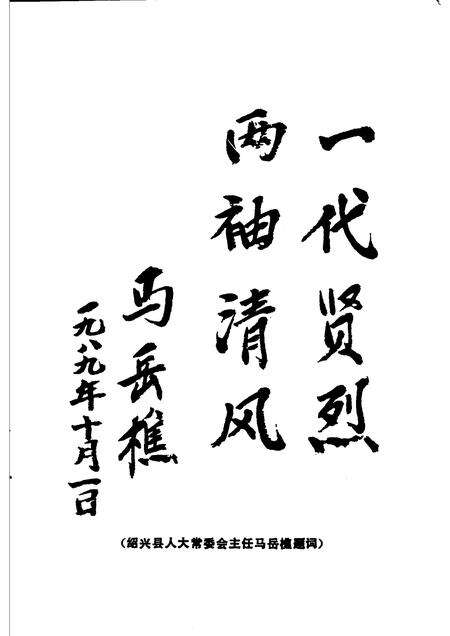 一代贤烈
两袖清风
马岳樵
一九八九年十月一日
（绍兴县人大常委会主任马岳樵题词）